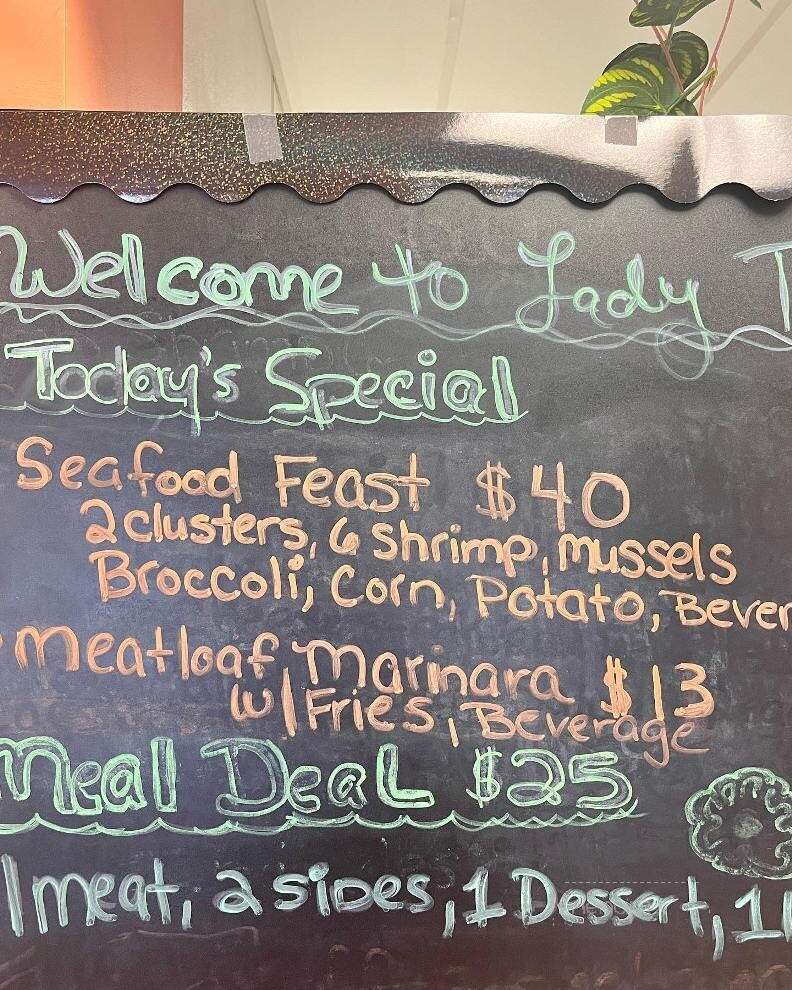 Welcome to Lady T
Today's Special
Seafood Feast $40
2 clusters, 6 shrimp, mussels
Broccoli, Corn, Potato, Bever
Meatloaf Marinara $13
w/ Fries, Beverage
Meal Deal $25
1 meat, 2 sides, 1 Dessert, 1